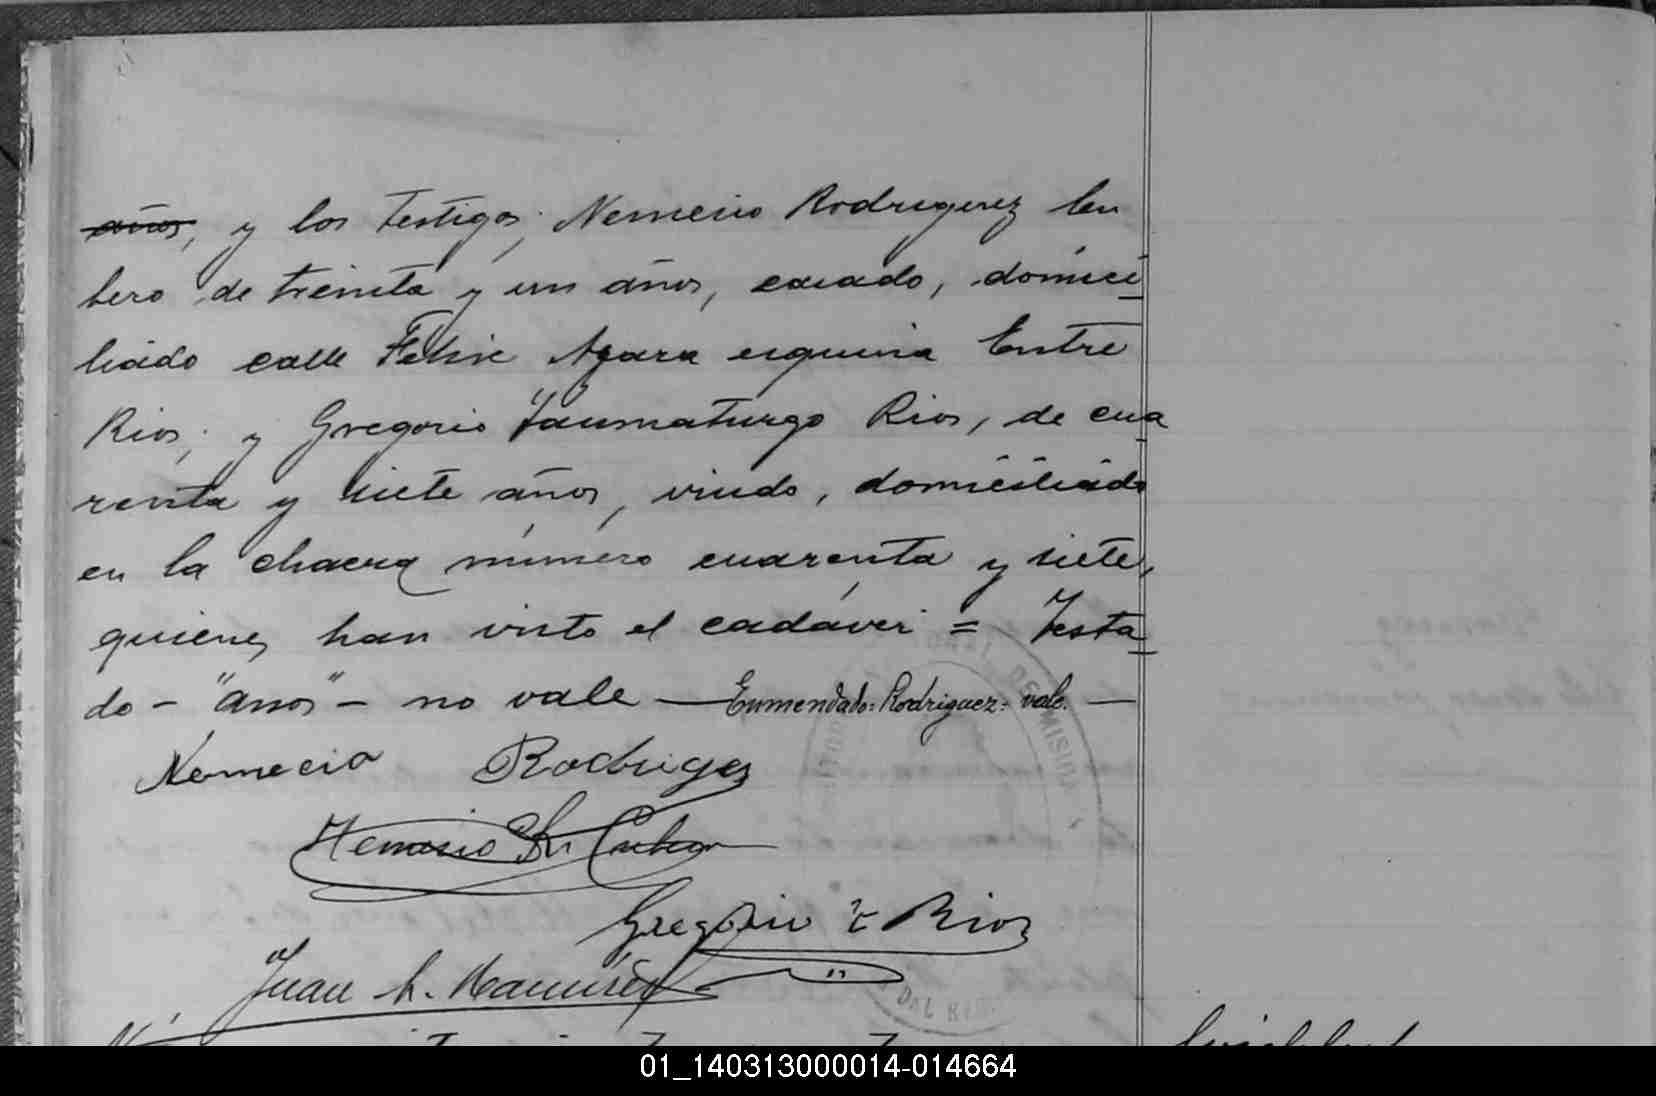 años, y los testigos; Nemecio Rodriguez
de treinta y un años, casado, domici
liado calle Felix Azara esquina Entre
Rios; y Gregorio Taumaturgo Rios, de cua
renta y siete años, viudo, domiciliado
en la chacra número cuarenta y siete,
quienes han visto el cadáver = Testa
do - "años" - no vale — Enmendado: Rodriguez: vale. —
Nemecio Rodrigez
Gregorio T Rios
Juan Ramirez
01_140313000014-014664